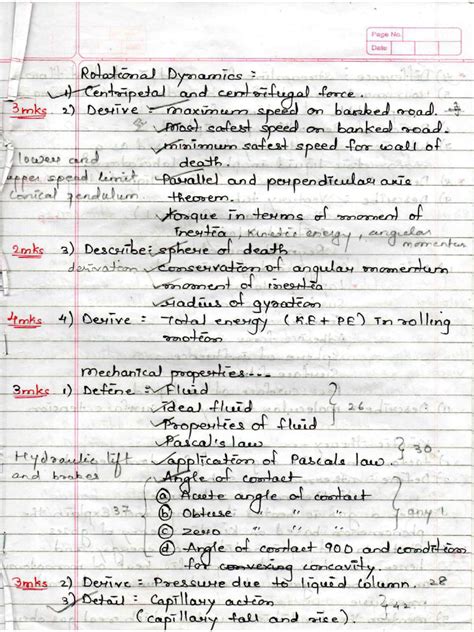 Page No.
Date
Rotational Dynamics :
1) Centripetal and centrifugal force.
3mks 2) Derive - maximum speed on banked road.
most safest speed on banked road.
minimum safest speed for wall of
death.
lower and
upper speed limit
Parallel and perpendicular axis
conical pendulum
theorem.
torque in terms of moment of
Inertia, kinetic energy, angular
momentum
2mks 3) Describe: sphere of death
derivation conservation of angular momentum
moment of inertia
radius of gyration
4mks 4) Derive : Total energy (KE + PE) in rolling
motion
mechanical properties---
3mks 1) Define : Fluid
ideal fluid } 26
Properties of fluid
Pascal's law
} 30
Hydraulic lift application of Pascals law.
and brakes Angle of contact
(a) Acute angle of contact
37 (b) Obtuse " " " } any 1.
(c) zero " " "
(d) Angle of contact 90D and condition
for convexing concavity.
3mks 2) Derive : Pressure due to liquid column. 28
3) Detail : Capillary action
(capillary fall and rise). } 42